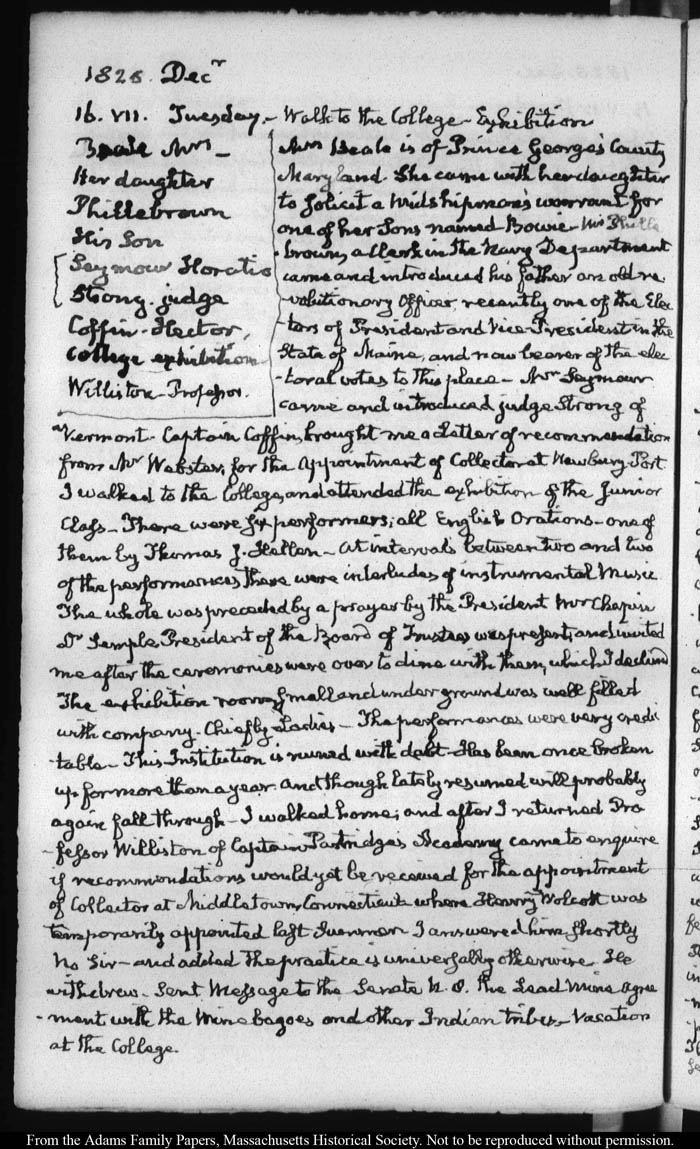 1828. Decr
16. VII. Tuesday. – Walk to the College – Exhibition
Beale Mrs –
Her daughter
Phillebrown
His Son
Seymour Horatio
Strong. judge
Coffin – Hector,
College exhibition
Williston – Professor.
Mrs Beale is of Prince George's County
Maryland. She came with her daughter
to solicit a Midshipman's warrant for
one of her Sons named Bowie – Mr Phille
-brown, a Clerk in the Navy Department
came and introduced his father an old re
-volutionary Officer, recently one of the Elec
-tors of President and Vice-President in the
State of Maine, and now bearer of the elec
-toral votes to this place – Mr Seymour
came and introduced judge Strong of
Vermont – Captain Coffin, brought me a Letter of recommendation
from Mr Webster, for the appointment of Collector at Newbury-Port
I walked to the College, and attended the exhibition of the Junior
Class – There were six performers; all English Orations – one of
them by Thomas J. Hellen – At intervals between two and two
of the performances there were interludes of instrumental Music
The whole was preceded by a prayer by the President Mr Chapin
Dr Semple President of the Board of Trustees was present, and invited
me after the ceremonies were over to dine with them, which I declined
The exhibition room small and under ground was well filled
with company – Chiefly Ladies – The performances were very credi
-table – This Institution is ruined with debt – Has been once broken
up for more than a year. and though lately resumed will probably
again fall through – I walked home; and after I returned Pro
-fessor Williston of Captain Partridge's Academy came to enquire
if recommendations would yet be received for the appointment
of Collector at Middletown, Connecticut where Henry Wolcott was
temporarily appointed last Summer I answered him shortly
No Sir – and added the practice is universally otherwise. He
withdrew – Sent Message to the Senate N. 8. the Lead Mine agree
-ment with the Winebagoes and other Indian tribes – Vacation
at the College.
From the Adams Family Papers, Massachusetts Historical Society. Not to be reproduced without permission.